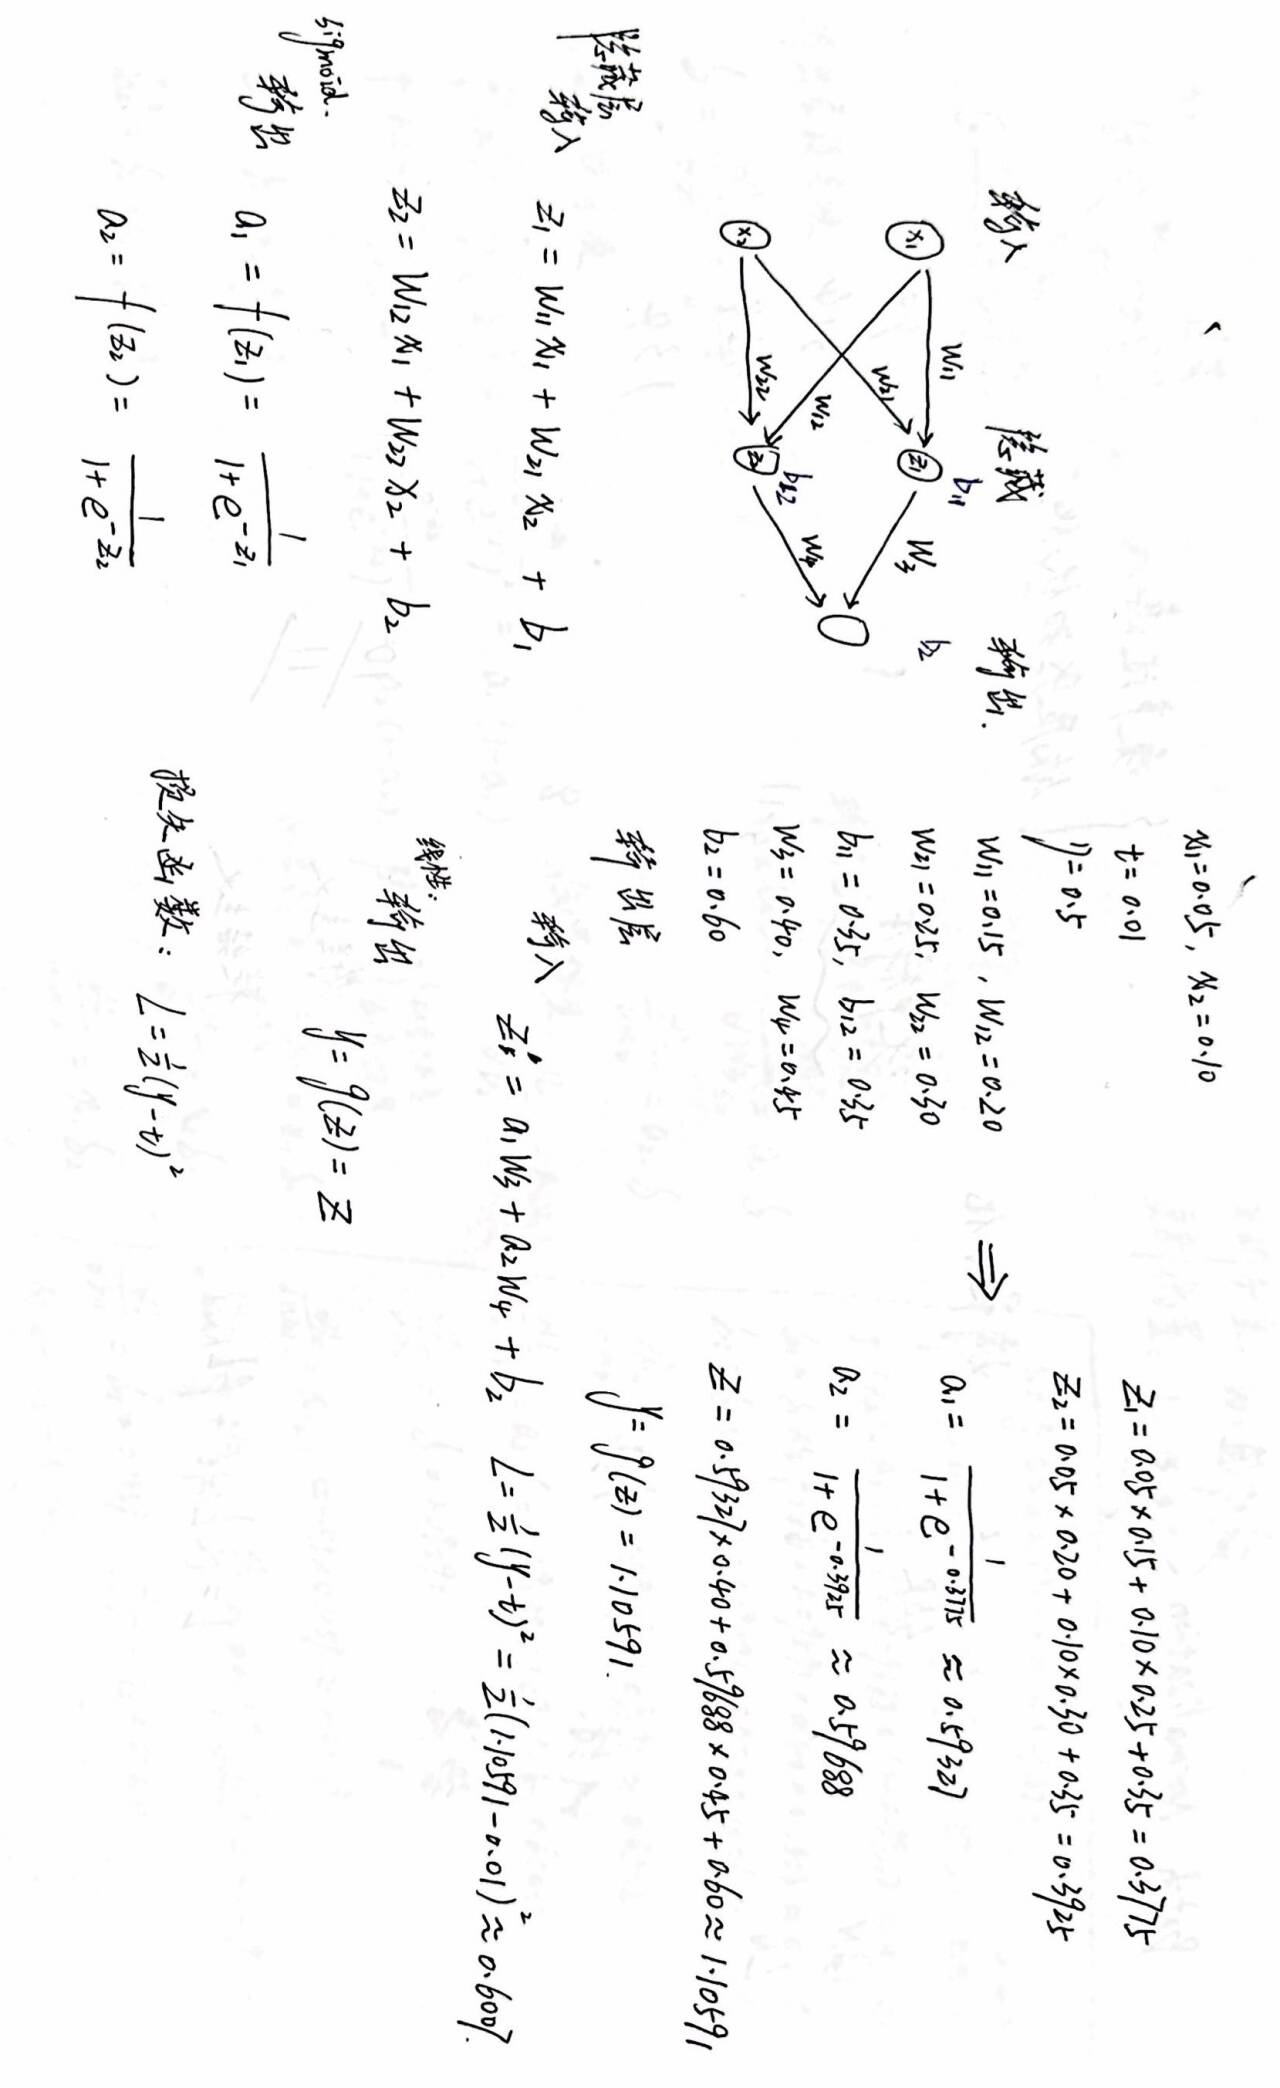 输入 隐藏 输出.
x₁ w₁₁ z₁ b₁₁ w₃ b₂
w₂₁
w₁₂
x₂ w₂₂ z₂ b₁₂ w₄
隐藏层
输入 z₁ = w₁₁x₁ + w₂₁x₂ + b₁
z₂ = w₁₂x₁ + w₂₂x₂ + b₂
sigmoid.
输出 a₁ = f(z₁) = 1/(1+e^(-z₁))
a₂ = f(z₂) = 1/(1+e^(-z₂))
x₁=0.05, x₂=0.10
t=0.01
η=0.5
w₁₁=0.15, w₁₂=0.20
w₂₁=0.25, w₂₂=0.30
b₁₁=0.35, b₁₂=0.35
w₃=0.40, w₄=0.45
b₂=0.60
输出层
输入 z = a₁w₃ + a₂w₄ + b₂
线性:
输出 y = g(z) = z
损失函数: L = 1/2(y-t)²
⇒
z₁ = 0.05×0.15 + 0.10×0.25 + 0.35 = 0.3775
z₂ = 0.05×0.20 + 0.10×0.30 + 0.35 = 0.3925
a₁ = 1/(1+e^(-0.3775)) ≈ 0.59327
a₂ = 1/(1+e^(-0.3925)) ≈ 0.59688
z = 0.59327×0.40 + 0.59688×0.45 + 0.60 ≈ 1.10591
y = g(z) = 1.10591.
L = 1/2(y-t)² = 1/2(1.10591-0.01)² ≈ 0.6007.